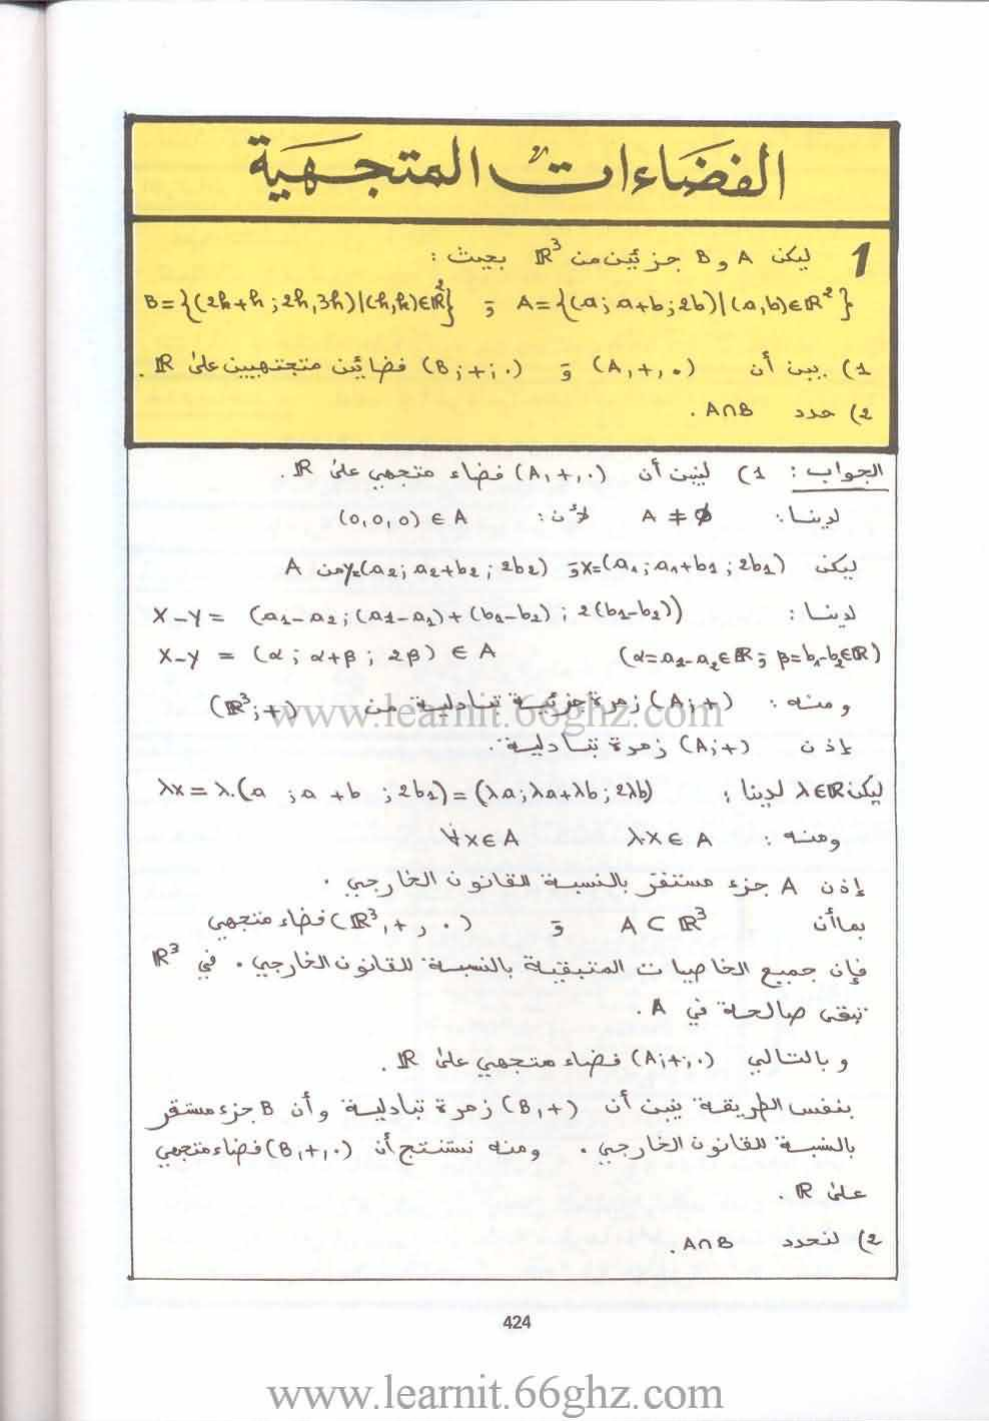 الفضاءات المتجهية
1 ليكن A و B جزئين من ℝ³ بحيث :
A={(a; a+b; 2b)|(a,b)∈ℝ²} ; و B={(2k+h; 2k,3h)|(h,k)∈ℝ²}
1) بين أن (A,+,.) و (B;+;.) فضائين متجهيين على ℝ .
2) حدد A∩B .
الجواب : 1) لنبين أن (A,+,.) فضاء متجهي على ℝ .
لدينا : A ≠ ∅ لأن : (0,0,0) ∈ A
ليكن x=(a₁; a₁+b₁; 2b₁) و y=(a₂; a₂+b₂; 2b₂) من A
لدينا : x-y = (a₁-a₂; (a₁-a₂)+(b₁-b₂); 2(b₁-b₂))
x-y = (α; α+β; 2β) ∈ A (α=a₁-a₂∈ℝ و β=b₁-b₂∈ℝ)
ومنه : (A;+) زمرة جزئية تبادلية من (ℝ³;+)
إذن (A;+) زمرة تبادلية .
ليكن λ∈ℝ لدينا : λx = λ.(a ;a +b ;2b₁) = (λa;λa+λb;2λb)
ومنه : λ.x ∈ A ∀x∈A
إذن A جزء مستقر بالنسبة للقانون الخارجي .
بما أن A ⊂ ℝ³ و (ℝ³,+,.) فضاء متجهي
فإن جميع الخاصيات المتبقية بالنسبة للقانون الخارجي . في ℝ³
تبقى صالحة في A .
و بالتالي (A;+;.) فضاء متجهي على ℝ .
بنفس الطريقة نبين أن (B,+) زمرة تبادلية وأن B جزء مستقر
بالنسبة للقانون الخارجي . ومنه نستنتج أن (B,+,.) فضاء متجهي
على ℝ .
2) لنحدد A∩B .
424
www.learnit.66ghz.com
www.learnit.66ghz.com